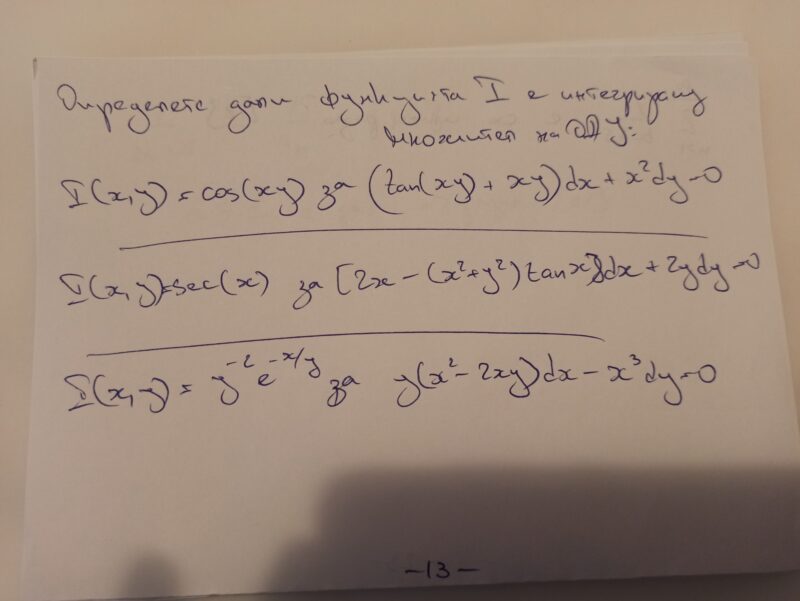 Определете дали функцията I е интегриращ
множител на ОДУ:
I(x,y) = cos(xy) за (tan(xy) + xy)dx + x²dy = 0
I(x,y) = sec(x) за [2x - (x²+y²) tan x]dx + 2ydy = 0
I(x,y) = y⁻² e^(-x/y) за y(x² - 2xy)dx - x³dy = 0
-13-